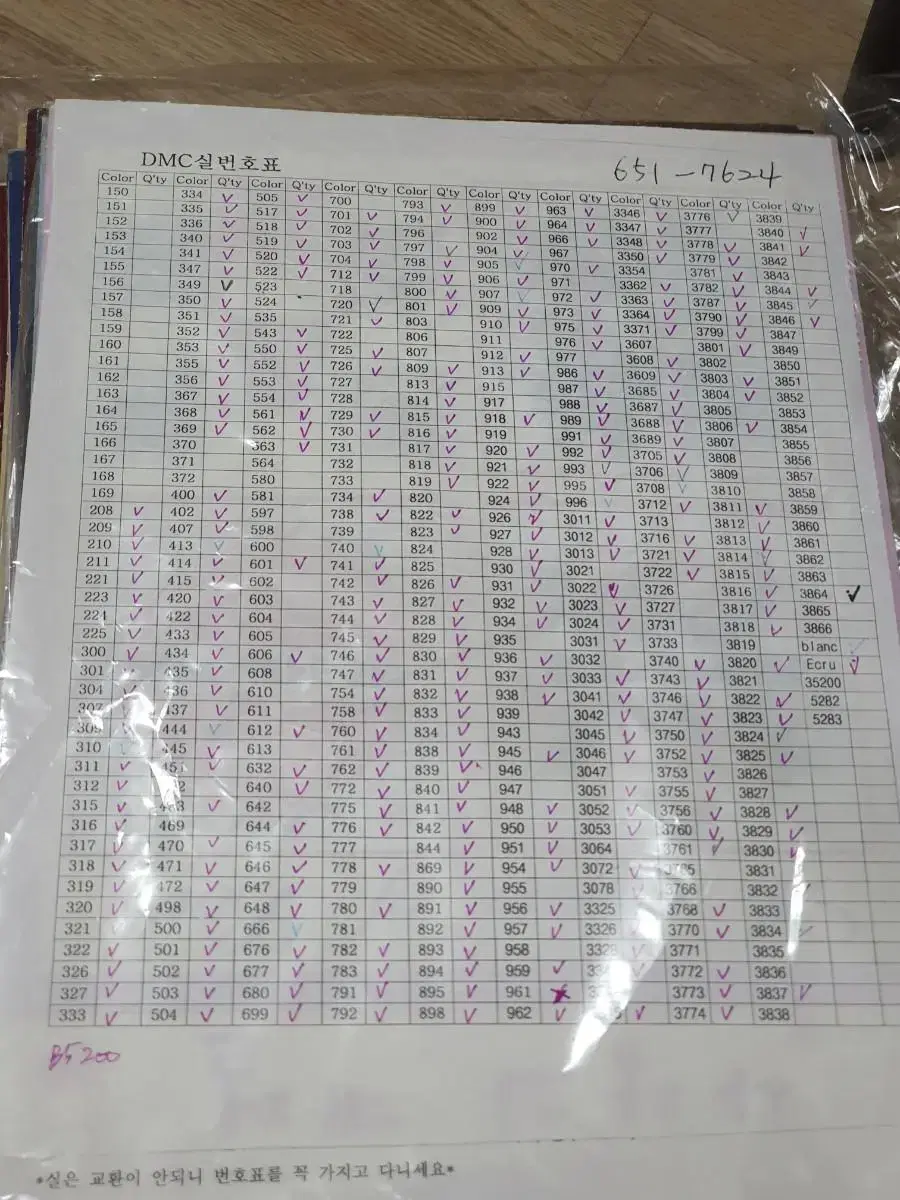 DMC실번호표
651-7624
Color Q'ty Color Q'ty Color Q'ty Color Q'ty Color Q'ty Color Q'ty Color Q'ty Color Q'ty Color Q'ty Color Q'ty
150 334 505 700 793 899 963 3346 3776 3839
151 335 517 701 794 900 964 3347 3777 3840
152 336 518 702 796 902 966 3348 3778 3841
153 340 519 703 797 904 967 3350 3779 3842
154 341 520 704 798 905 970 3354 3781 3843
155 347 522 712 799 906 971 3362 3782 3844
156 349 523 718 800 907 972 3363 3787 3845
157 350 524 720 801 909 973 3364 3790 3846
158 351 535 721 803 910 975 3371 3799 3847
159 352 543 722 806 911 976 3607 3801 3849
160 353 550 725 807 912 977 3608 3802 3850
161 355 552 726 809 913 986 3609 3803 3851
162 356 553 727 813 915 987 3685 3804 3852
163 367 554 728 814 917 988 3687 3805 3853
164 368 561 729 815 918 989 3688 3806 3854
165 369 562 730 816 919 991 3689 3807 3855
166 370 563 731 817 920 992 3705 3808 3856
167 371 564 732 818 921 993 3706 3809 3857
168 372 580 733 819 922 995 3708 3810 3858
169 400 581 734 820 924 996 3712 3811 3859
208 402 597 738 822 926 3011 3713 3812 3860
209 407 598 739 823 927 3012 3716 3813 3861
210 413 600 740 824 928 3013 3721 3814 3862
211 414 601 741 825 930 3021 3722 3815 3863
221 415 602 742 826 931 3022 3726 3816 3864
223 420 603 743 827 932 3023 3727 3817 3865
224 422 604 744 828 934 3024 3731 3818 3866
225 433 605 745 829 935 3031 3733 3819 blanc
300 434 606 746 830 936 3032 3740 3820 Ecru
301 435 608 747 831 937 3033 3743 3821 35200
304 436 610 754 832 938 3041 3746 3822 5282
307 437 611 758 833 939 3042 3747 3823 5283
309 444 612 760 834 943 3045 3750 3824
310 445 613 761 838 945 3046 3752 3825
311 451 632 762 839 946 3047 3753 3826
312 640 772 840 947 3051 3755 3827
315 453 642 775 841 948 3052 3756 3828
316 469 644 776 842 950 3053 3760 3829
317 470 645 777 844 951 3064 3761 3830
318 471 646 778 869 954 3072 3765 3831
319 472 647 779 890 955 3078 3766 3832
320 498 648 780 891 956 3325 3768 3833
321 500 666 781 892 957 3326 3770 3834
322 501 676 782 893 958 3328 3771 3835
326 502 677 783 894 959 3772 3836
327 503 680 791 895 961 3773 3837
333 504 699 792 898 962 3774 3838
B5200
*실은 교환이 안되니 번호표를 꼭 가지고 다니세요*